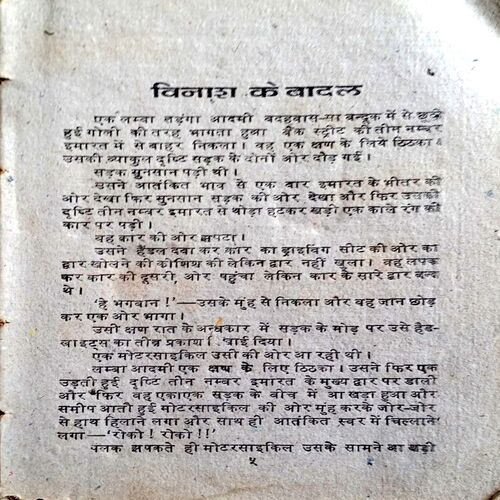 विनाश के बादल
एक लम्बा तड़ंगा आदमी बदहवास-सा बन्दूक में से छूटी
हुई गोली की तरह भागता हुआ बैंक स्ट्रीट की तीन नम्बर
इमारत में से बाहर निकला। वह एक क्षण के लिये ठिठका।
उसकी व्याकुल दृष्टि सड़क के दोनों ओर दौड़ गई।
सड़क सुनसान पड़ी थी।
उसने आतंकित भाव से एक बार इमारत के भीतर की
ओर देखा फिर सुनसान सड़क की ओर देखा और फिर उसकी
दृष्टि तीन नम्बर इमारत से थोड़ा हटकर खड़ी एक काले रंग की
कार पर पड़ी।
वह कार की ओर झपटा।
उसने हैंडल दबा कर कार का ड्राइविंग सीट की ओर का
द्वार खोलने की कोशिश की लेकिन द्वार नहीं खुला। वह लपक
कर कार की दूसरी, ओर पहुंचा लेकिन कार के सारे द्वार बन्द
थे।
'हे भगवान !'—उसके मुंह से निकला और वह जान छोड़
कर एक ओर भागा।
उसी क्षण रात के अन्धकार में सड़क के मोड़ पर उसे हैड-
लाइट्स का तीव्र प्रकाश वाई दिया।
एक मोटरसाइकिल उसी की ओर आ रही थी।
लम्बा आदमी एक क्षण के लिए ठिठका। उसने फिर एक
उड़ती हुई दृष्टि तीन नम्बर इमारत के मुख्य द्वार पर डाली
और फिर वह एकाएक सड़क के बीच में आ खड़ा हुआ और
समीप आती हुई मोटरसाइकिल की ओर मुंह करके जोर-जोर
से हाथ हिलाने लगा और साथ ही आतंकित स्वर में चिल्लाने
लगा—'रोको ! रोको !!'
पलक झपकते ही मोटरसाइकिल उसके सामने आ खड़ी
५